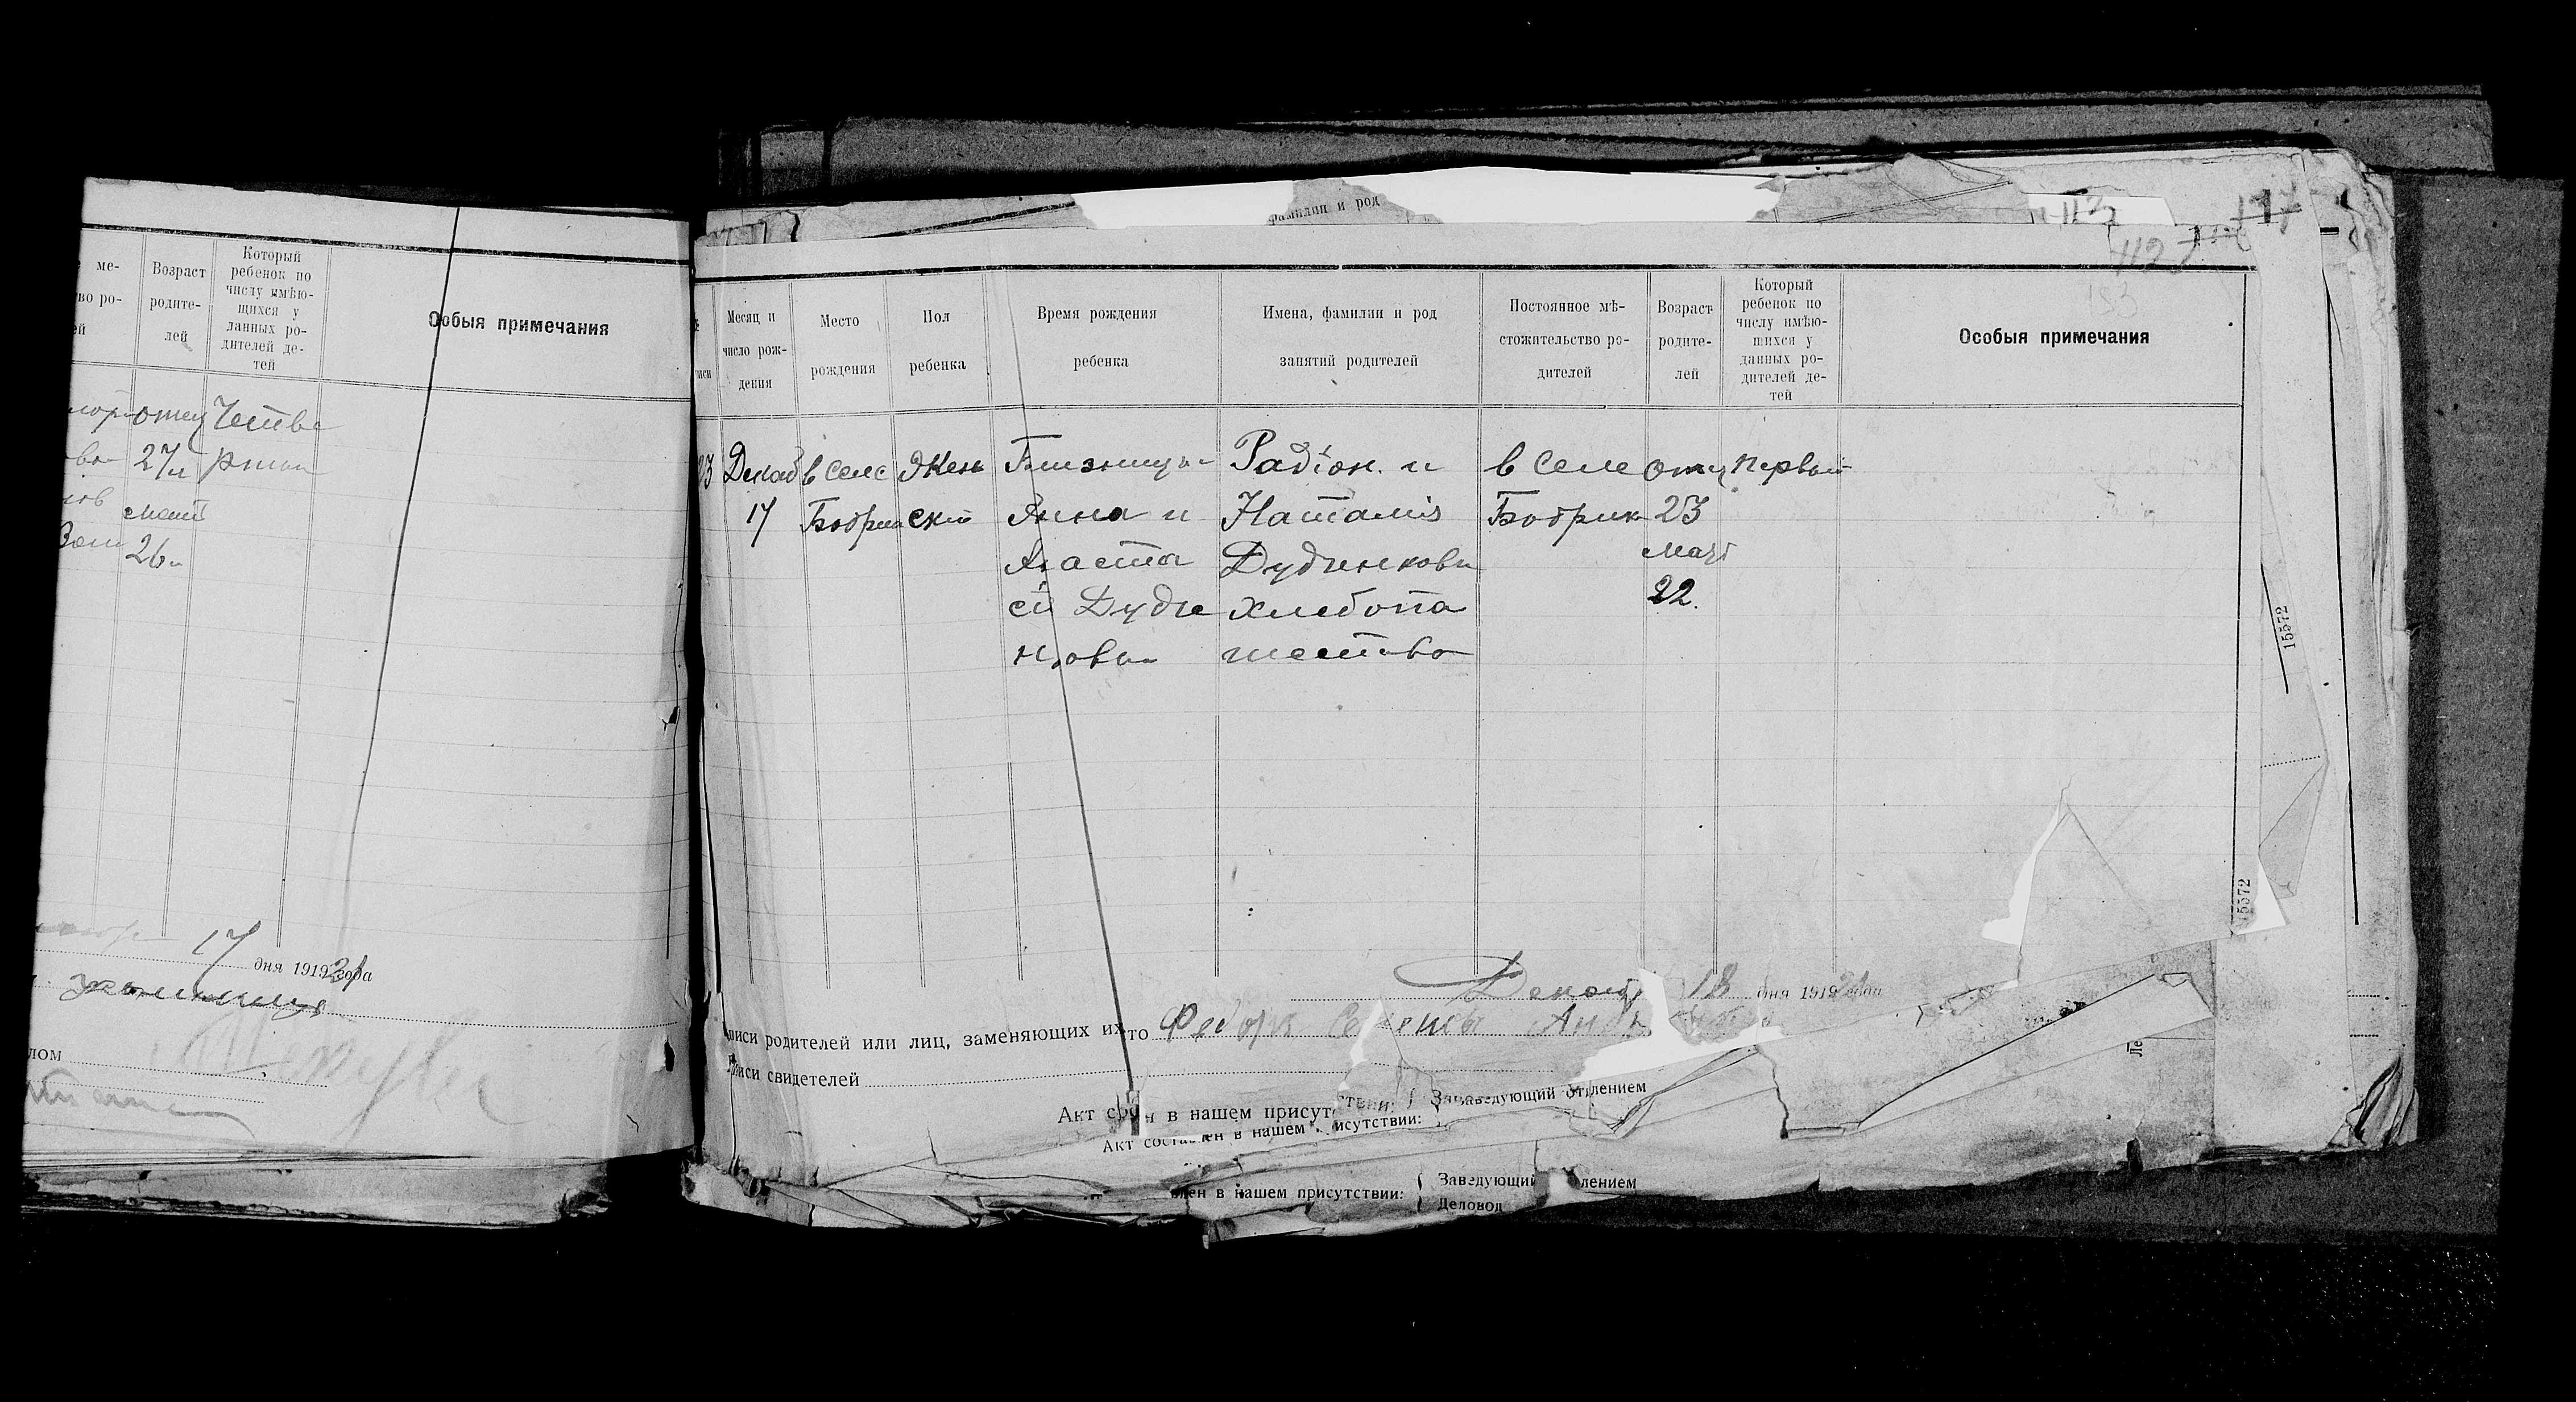 ме-
во ро-
ей
Возраст
родите-
лей
Который
ребенок по
числу имѣю-
щихся у
данных ро-
дителей де-
тей
Особыя примечания
отец
27 л
мат
26 л
Четве
ртий
17 дня 1919 21 года
лом
фамилии и род
113
117
112
Месяц и
число рож-
дения
Место
рождения
Пол
ребенка
Время рождения
ребенка
Имена, фамилии и род
занятий родителей
Постоянное мѣ-
стожительство ро-
дителей
Возраст
родите-
лей
Который
ребенок по
числу имѣю-
щихся у
данных ро-
дителей де-
тей
Особыя примечания
Декаб
17
в селе
Бобрик
Жен
ский
Близнецы
Анна и
Анаста
сий Дудче
нкови
Радіон и
Наталія
Дудченкови
хлебопа
шество
в селе
Бобрик
отец
23
мат
22.
первый
15572
15572
Декабр 18 дня 1919 21 года
писи родителей или лиц, заменяющих их
то Федора
писи свидетелей
Акт
н в нашем присутствии:
Зававедующий отделением
Акт составлен в нашем присутствии:
влен в нашем присутствии:
Заведующий
лением
Деловод
Ле